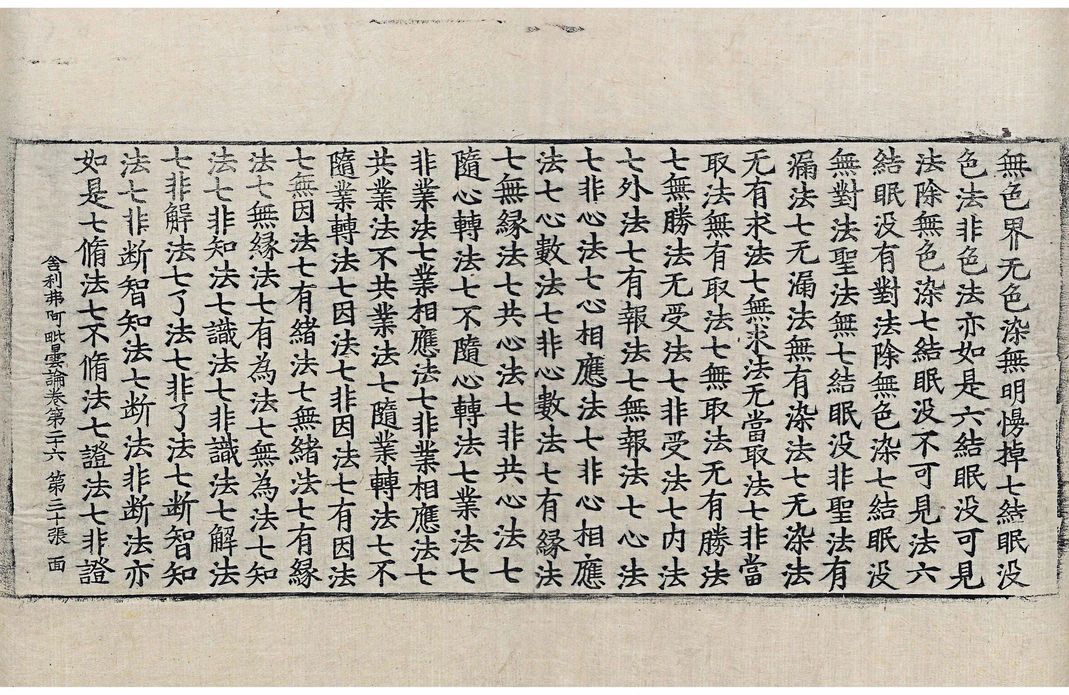 無色界无色染無明慢掉七結眠没
色法非色法亦如是六結眠没可見
法除無色染七結眠没不可見法六
結眠没有對法除無色染七結眠没
無對法聖法無七結眠没非聖法有
漏法七无漏法無有染法七无染法
无有求法七無求法无當取法七非當
取法無有取法七無取法无有勝法
七無勝法无受法七非受法七内法
七外法七有報法七無報法七心法
七非心法七心相應法七非心相應
法七心數法七非心數法七有緣法
七無緣法七共心法七非共心法七
隨心轉法七不隨心轉法七業法七
非業法七業相應法七非業相應法七
共業法不共業法七隨業轉法七不
隨業轉法七因法七非因法七有因法
七無因法七有緒法七無緒法七有緣
法七無緣法七有為法七無為法七知
法七非知法七識法七非識法七解法
七非解法七了法七非了法七断智知
法七非断智知法七断法非断法亦
如是七脩法七不脩法七證法七非證
舍利弗阿毗曇論卷第二十六 第三十張 面